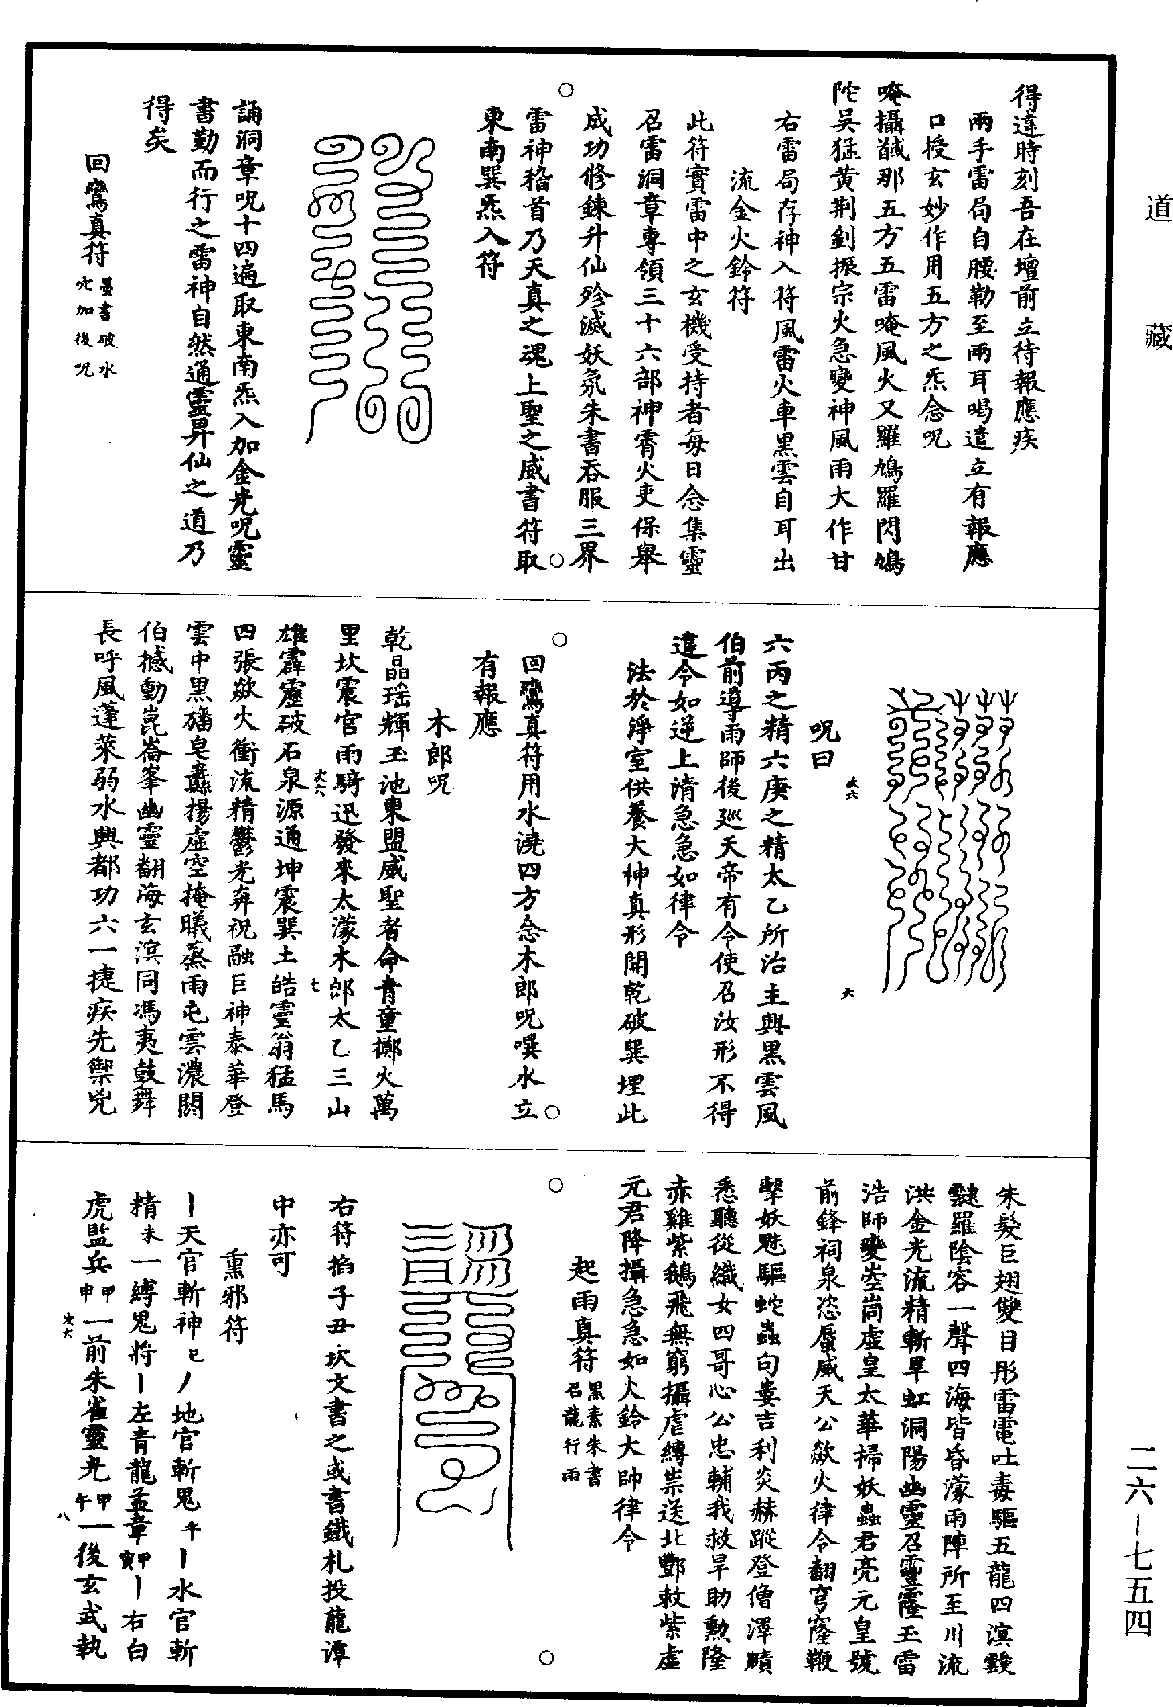 道藏
得違時刻吾在壇前立待報應疾
兩手雷局自腰勒至兩耳喝遣立有報應
口授玄妙作用五方之炁念呪
唵攝馘那五方五雷唵風火又羅鳩羅閃鳩
陀吴猛黄荆釗振宗火急變神風雨大作甘
右雷局存神入符風雷火車黑雲自耳出
流金火鈴符
此符實雷中之玄機受持者每日念集靈
召雷洞章專領三十六部神霄火吏保舉
成功修鍊升仙殄滅妖氛朱書吞服三界
雷神稽首乃天真之魂上聖之威書符取
東南巽炁入符
誦洞章呪十四遍取東南炁入加金光呪靈
書勤而行之雷神自然通靈昇仙之道乃
得矣
回鸞真符墨書破水穴加後呪
呪曰
六丙之精六庚之精太乙所治主興黑雲風
伯前導雨師後廵天帝有令使召汝形不得
違令如逆上清急急如律令
法於淨室供養大神真形開乾破巽埋此
回鸞真符用水澆四方念木郎呪噀水立
有報應
木郎呪
乾晶瑶輝玉池東盟威聖者命青童擲火萬
里坎震宫雨騎迅發來太濛木郎太乙三山
雄霹靂破石泉源通坤震巽土皓靈翁猛馬
四張歘火衝流精鬱光奔祝融巨神泰華登
雲中黑旛皂纛揚虚空掩曦蒸雨屯雲濃閼
伯撼動崑崙峯幽靈翻海玄溟同馮夷鼓舞
長呼風蓬萊弱水興都功六一捷疾先禦兇
朱髮巨翅雙目彤雷電吐毒驅五龍四溟䨴
靆羅陰容一聲四海皆昏濛雨陣所至川流
洪金光流精斬旱虹洞陽幽靈召靈隆玉雷
浩師變崆峒虚皇太華掃妖蟲君亮元皇號
前鋒祠泉恣蜃威天公歘火律令翻穹窿鞭
擊妖魃驅蛇蟲句婁吉利炎赫蹤登僧澤䐜
悉聽從織女四哥心公忠輔我救旱助勲隆
赤雞紫鵝飛無窮攝虐縛祟送北酆敕紫虚
元君降攝急急如火鈴大帥律令
起雨真符黑素朱書召龍行雨
右符掐子丑坎文書之或書鐵札投龍潭
中亦可
熏邪符
丨天官斬神巳丿地官斬鬼午丨水官斬
精未一縛鬼將丨左青龍孟章甲寅丨右白
虎監兵甲申一前朱雀靈光甲午一後玄武執
二六－七五四